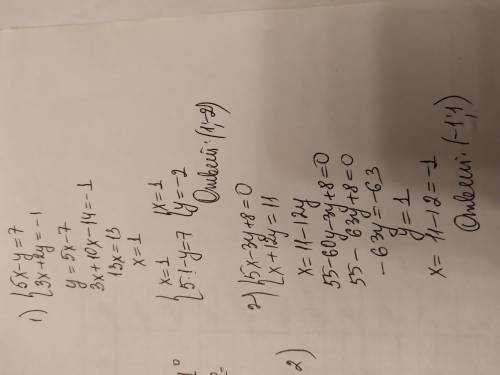 1) {5x-y=7
{3x+2y=-1
y=5x-7
3x+10x-14=-1
13x=13
x=1
{x=1 {x=1
{5·1-y=7 {y=-2
Ответ: (1;-2)
2) {5x-3y+8=0
{x+12y=11
x=11-12y
55-60y-3y+8=0
55-63y+8=0
-63y=-63
y=1
x=11-12=-1
Ответ: (-1;1)
2)